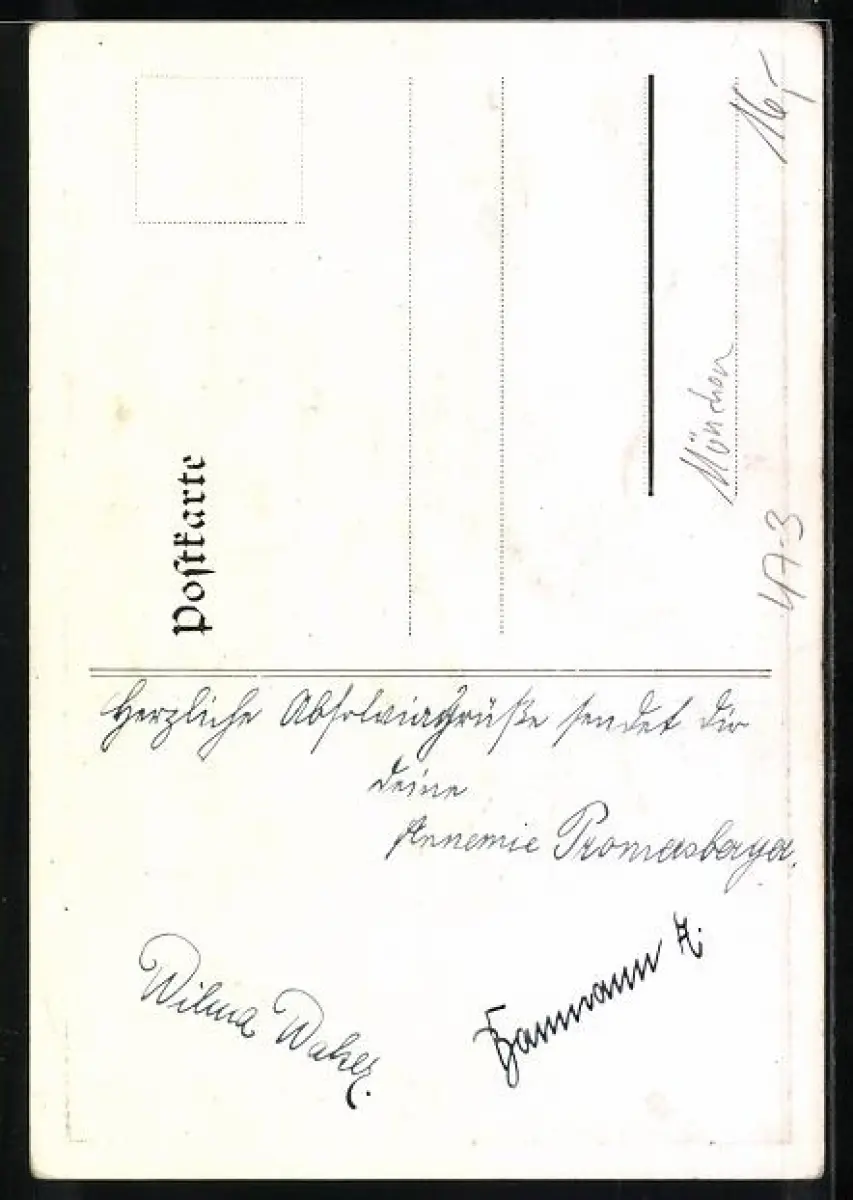 Postkarte
16,-
München
47-3
Herzliche Absolviagrüße sendet dir
deine
Annemie Promersberger.
Wilma